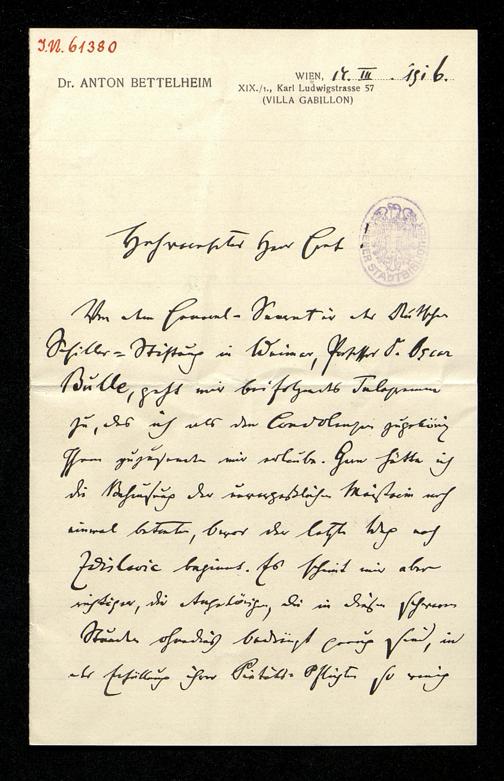 J.N. 61380
Dr. ANTON BETTELHEIM
WIEN, 14. III. 1916.
XIX./1., Karl Ludwigstrasse 57
(VILLA GABILLON)
WIENER STADTBIBLIOTHEK
Hochverehrter Herr Graf!
Von dem General-Secretär der Deutschen
Schiller-Stiftung in Weimar, Professor D. Oscar
Bulle, geht mir beifolgendes Telegramm
zu, das ich als den Condolenzen zugehörig
Ihnen zuzusenden mir erlaube. Gern hätte ich
die Behausung der unvergesslichen Meisterin noch
einmal betreten, bevor der letzte Weg nach
Zdislavic beginnt. Es scheint mir aber
richtiger, die Angehörigen, die in diesen schweren
Stunden ohnedies bedrängt genug sind, in
der Erfüllung ihrer Pietäts-Pflichten so wenig